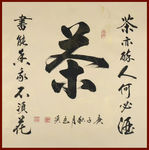 茶亦醉人何必酒
茶
書能香我不須花
庚子秋月